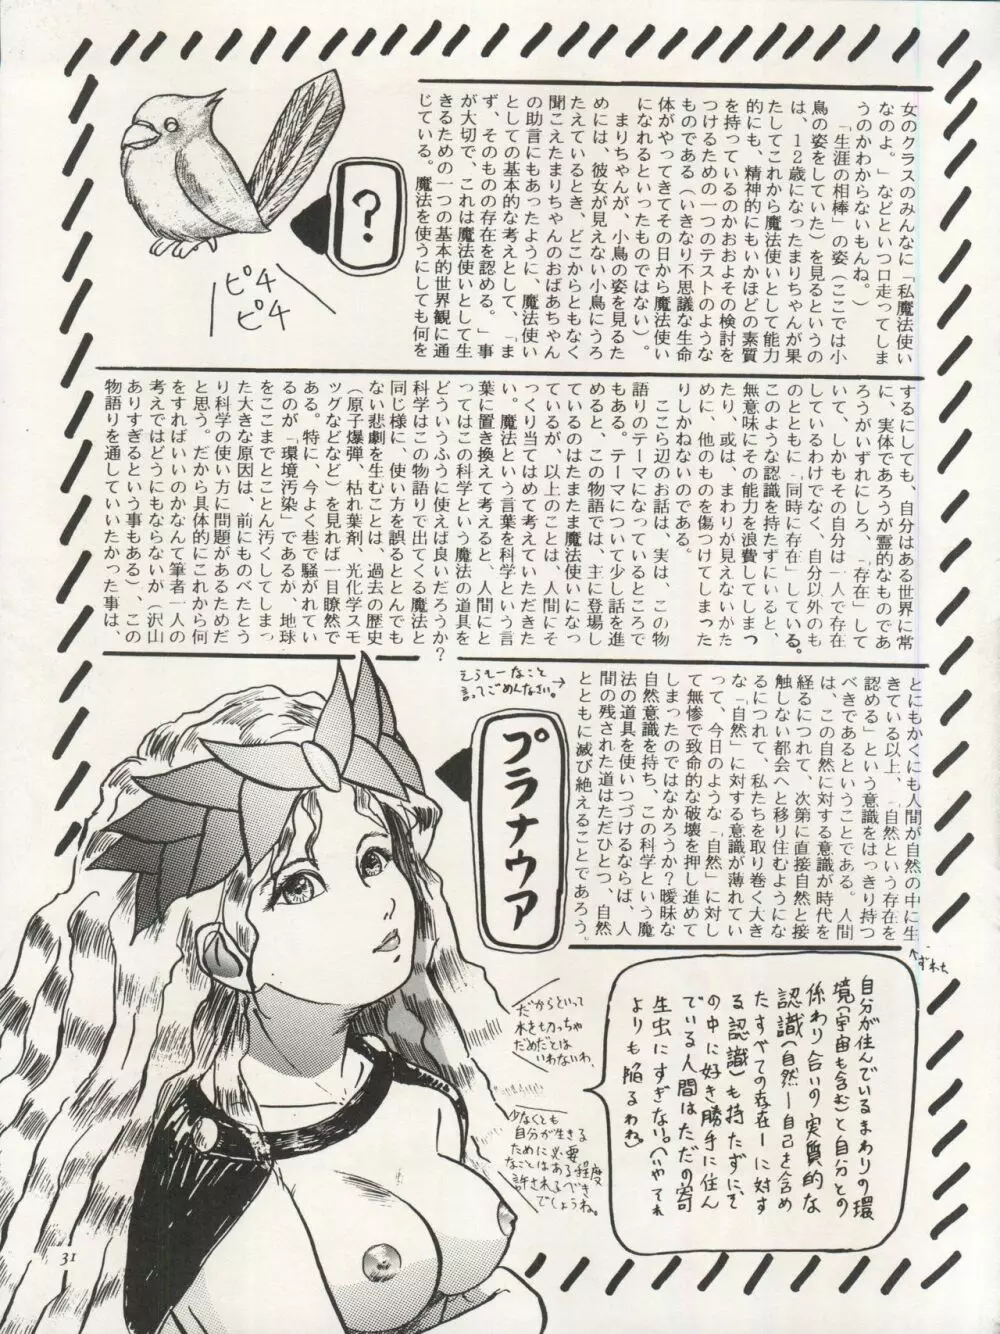 女のクラスのみんなに「私魔法使い
なのよ。」などといつ口走ってしま
うのかわからないもんね。）
「生涯の相棒」の姿（ここでは小
鳥の姿をしていた）を見るというの
は、12歳になったまりちゃんが果
たしてこれから魔法使いとして能力
的にも、精神的にもいかほどの素質
を持っているのかおおよその検討を
つけるための一つのテストのような
ものである（いきなり不思議な生命
体がやってきてその日から魔法使い
になれるといったものではない）。
まりちゃんが、小鳥の姿を見るた
めには、彼女が見えない小鳥にうろ
たえているとき、どこからともなく
聞こえたまりちゃんのおばあちゃん
の助言にもあったように、魔法使い
としての基本的な考えとして、「ま
ず、そのもの存在を認める。」事
が大切で、これは魔法使いとして生
きるための一つの基本的世界観に通
じている。魔法を使うにしても何を
?
ピチ
ピチ
するにしても、自分はある世界に常
に、実体であろうが霊的なものであ
ろうがいずれにしろ、「存在」して
いて、しかもその自分は一人で存在
しているわけでなく、自分以外のも
のとともに「同時に存在」している。
このような認識を持たずにいると、
無意味にその能力を浪費してしまっ
たり、或は、まわりが見えないかた
めに、他のものを傷つけてしまった
りしかねないのである。
ここら辺のお話は、実は、この物
語りのテーマになっているところで
もある。テーマについて少し話を進
めると、この物語では、主に登場し
ているのはたまたま魔法使いになっ
ているが、以上のことは、人間にそ
っくり当てはめて考えていただきた
い。魔法という言葉を科学という言
葉に置き換えて考えると、人間にと
ってはこの科学という魔法の道具を
どういうふうに使えば良いだろうか？
科学はこの物語りで出てくる魔法と
同じ様に、使い方を誤るととんでも
ない悲劇を生むことは、過去の歴史
（原子爆弾、枯れ葉剤、光化学スモ
ッグなどなど）を見れば一目瞭然で
ある。特に、今よく巷で騒がれてい
るのが「環境汚染」であるが、地球
をここまでとことん汚くしてしまっ
た大きな原因は、前にものべたとう
り科学の使い方に問題があるためだ
と思う。だから具体的にこれから何
をすればいいのかなんて筆者一人の
考えではどうにもならないが（沢山
ありすぎるという事もある）、この
物語りを通していいたかった事は、
とにもかくにも人間が自然の中に生
きている以上、「自然という存在を
認める」という意識をはっきり持つ
べきであるということである。人間
は、この自然に対する意識が時代を
経るにつれて、次第に直接自然と接
触しない都会へと移り住むようにな
るにつれて、私たちを取り巻く大き
な「自然」に対する意識が薄れてい
って、今日のような「自然」に対し
て無惨で致命的な破壊を押し進めて
しまったのではなかろうか？曖昧な
自然意識を持ち、この科学という魔
法の道具を使いつづけるならば、人
間の残された道はただひとつ、自然
とともに滅び絶えることであろう。
↑ずれた
そうもーなこと
言ってごめんなさい。→
プラナウア
自分が住んでいるまわりの環
境（宇宙も含む）と自分との
係わり合いの実質的な
認識（自然ー自己を含め
たすべての存在ーに対す
る認識）も持たずにそ
の中に好き勝手に住ん
でいる人間はただの寄
生虫にすぎない。（いやそれ
よりも陥るわね）
だからといって
木を切っちゃ
だめだとは
いわないわ。
少なくとも
自分が生きる
ために必要
なことはある程度
許されるべき
でしょうね。
31